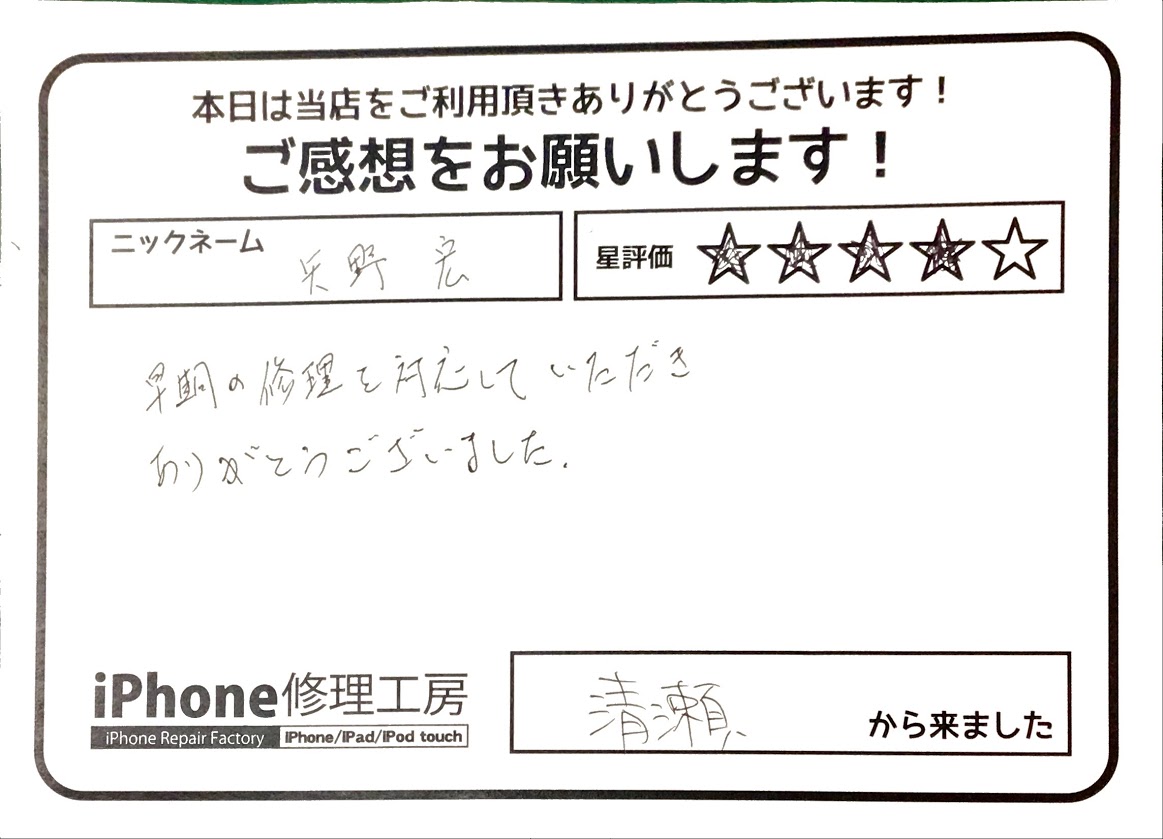 本日は当店をご利用頂きありがとうございます！
ご感想をお願いします！
ニックネーム 矢野 宏
星評価
早期の修理を対応していただき
ありがとうございました.
iPhone修理工房
iPhone Repair Factory iPhone/iPad/iPod touch
清瀬 から来ました